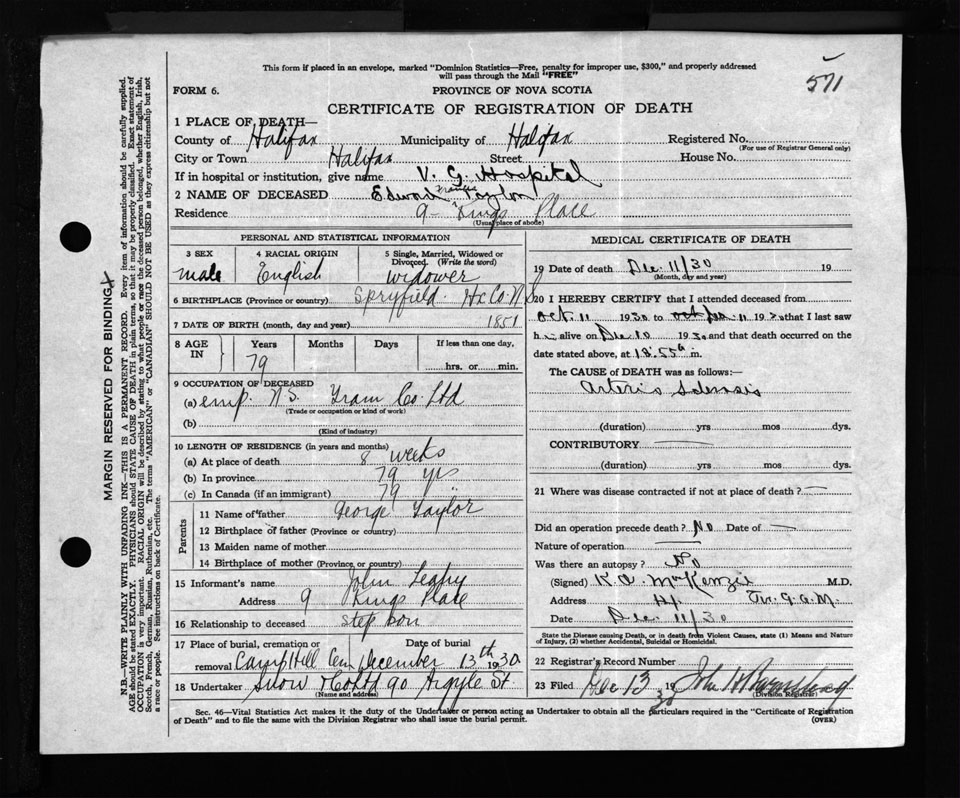 571
This form if placed in an envelope, marked "Dominion Statistics—Free, penalty for improper use, $300," and properly addressed
will pass through the Mail "FREE"
FORM 6.
PROVINCE OF NOVA SCOTIA
CERTIFICATE OF REGISTRATION OF DEATH
1 PLACE OF DEATH—
County of Halifax Municipality of Halifax Registered No.
(For use of Registrar General only)
City or Town Halifax Street House No.
If in hospital or institution, give name V. G. Hospital
2 NAME OF DECEASED Edward Francis Taylor
Residence 9 - Kings Place
(Usual place of abode)
PERSONAL AND STATISTICAL INFORMATION
3 SEX male
4 RACIAL ORIGIN English
5 Single, Married, Widowed or Divorced. (Write the word) widower
6 BIRTHPLACE (Province or country) Spryfield Hx Co. N S
7 DATE OF BIRTH (month, day and year) 1851
8 AGE IN Years 79 Months Days If less than one day, hrs. or min.
9 OCCUPATION OF DECEASED
(a) emp. N S. Tram Co. Ltd
(Trade or occupation or kind of work)
(b)
(Kind of industry)
10 LENGTH OF RESIDENCE (in years and months)
(a) At place of death 8 weeks
(b) In province 79 yrs
(c) In Canada (if an immigrant) 79 "
Parents
11 Name of father George Taylor
12 Birthplace of father (Province or country)
13 Maiden name of mother
14 Birthplace of mother (Province or country)
15 Informant's name John Leahy
Address 9 Kings Place
16 Relationship to deceased step son
17 Place of burial, cremation Date of burial
removal Camp Hill Cem December 13th 1930
18 Undertaker Snow & Co Ltd 90 Argyle St
(Name and address)
MEDICAL CERTIFICATE OF DEATH
19 Date of death Dec 11/30 19
(Month, day and year)
20 I HEREBY CERTIFY that I attended deceased from
Oct 11 1930 to Dec 11 1930 that I last saw
h alive on Dec 10 1930 and that death occurred on the
date stated above, at 12.55 a m.
The CAUSE of DEATH was as follows:—
Arterio Sclerosis
(duration) yrs mos dys.
CONTRIBUTORY
(duration) yrs mos dys.
21 Where was disease contracted if not at place of death?
Did an operation precede death? No Date of
Nature of operation
Was there an autopsy? No
(Signed) K. A. MacKenzie M.D.
Address
Date Dec. 11/30
State the Disease causing Death, or in death from Violent Causes, state (1) Means and Nature
of Injury, (2) whether Accidental, Suicidal or Homicidal.
22 Registrar's Record Number
23 Filed Dec 13 1930 John
(Division Registrar)
Sec. 46—Vital Statistics Act makes it the duty of the Undertaker or person acting as Undertaker to obtain all the particulars required in the "Certificate of Registration
of Death" and to file the same with the Division Registrar who shall issue the burial permit.
(OVER)
MARGIN RESERVED FOR BINDING
N.B.—WRITE PLAINLY WITH UNFADING INK—THIS IS A PERMANENT RECORD. Every item of information should be carefully supplied.
AGE should be stated EXACTLY. PHYSICIANS should STATE CAUSE OF DEATH in plain terms, so that it may be properly classified. Exact statement of
OCCUPATION is very important. RACIAL ORIGIN will be described by stating to what people or race the deceased person belonged, whether English, Irish,
Scotch, French, German, Russian, Ruthenian, etc. The terms "AMERICAN" or "CANADIAN" SHOULD NOT BE USED as they express citizenship but not
a race or people. See instructions on back of Certificate.